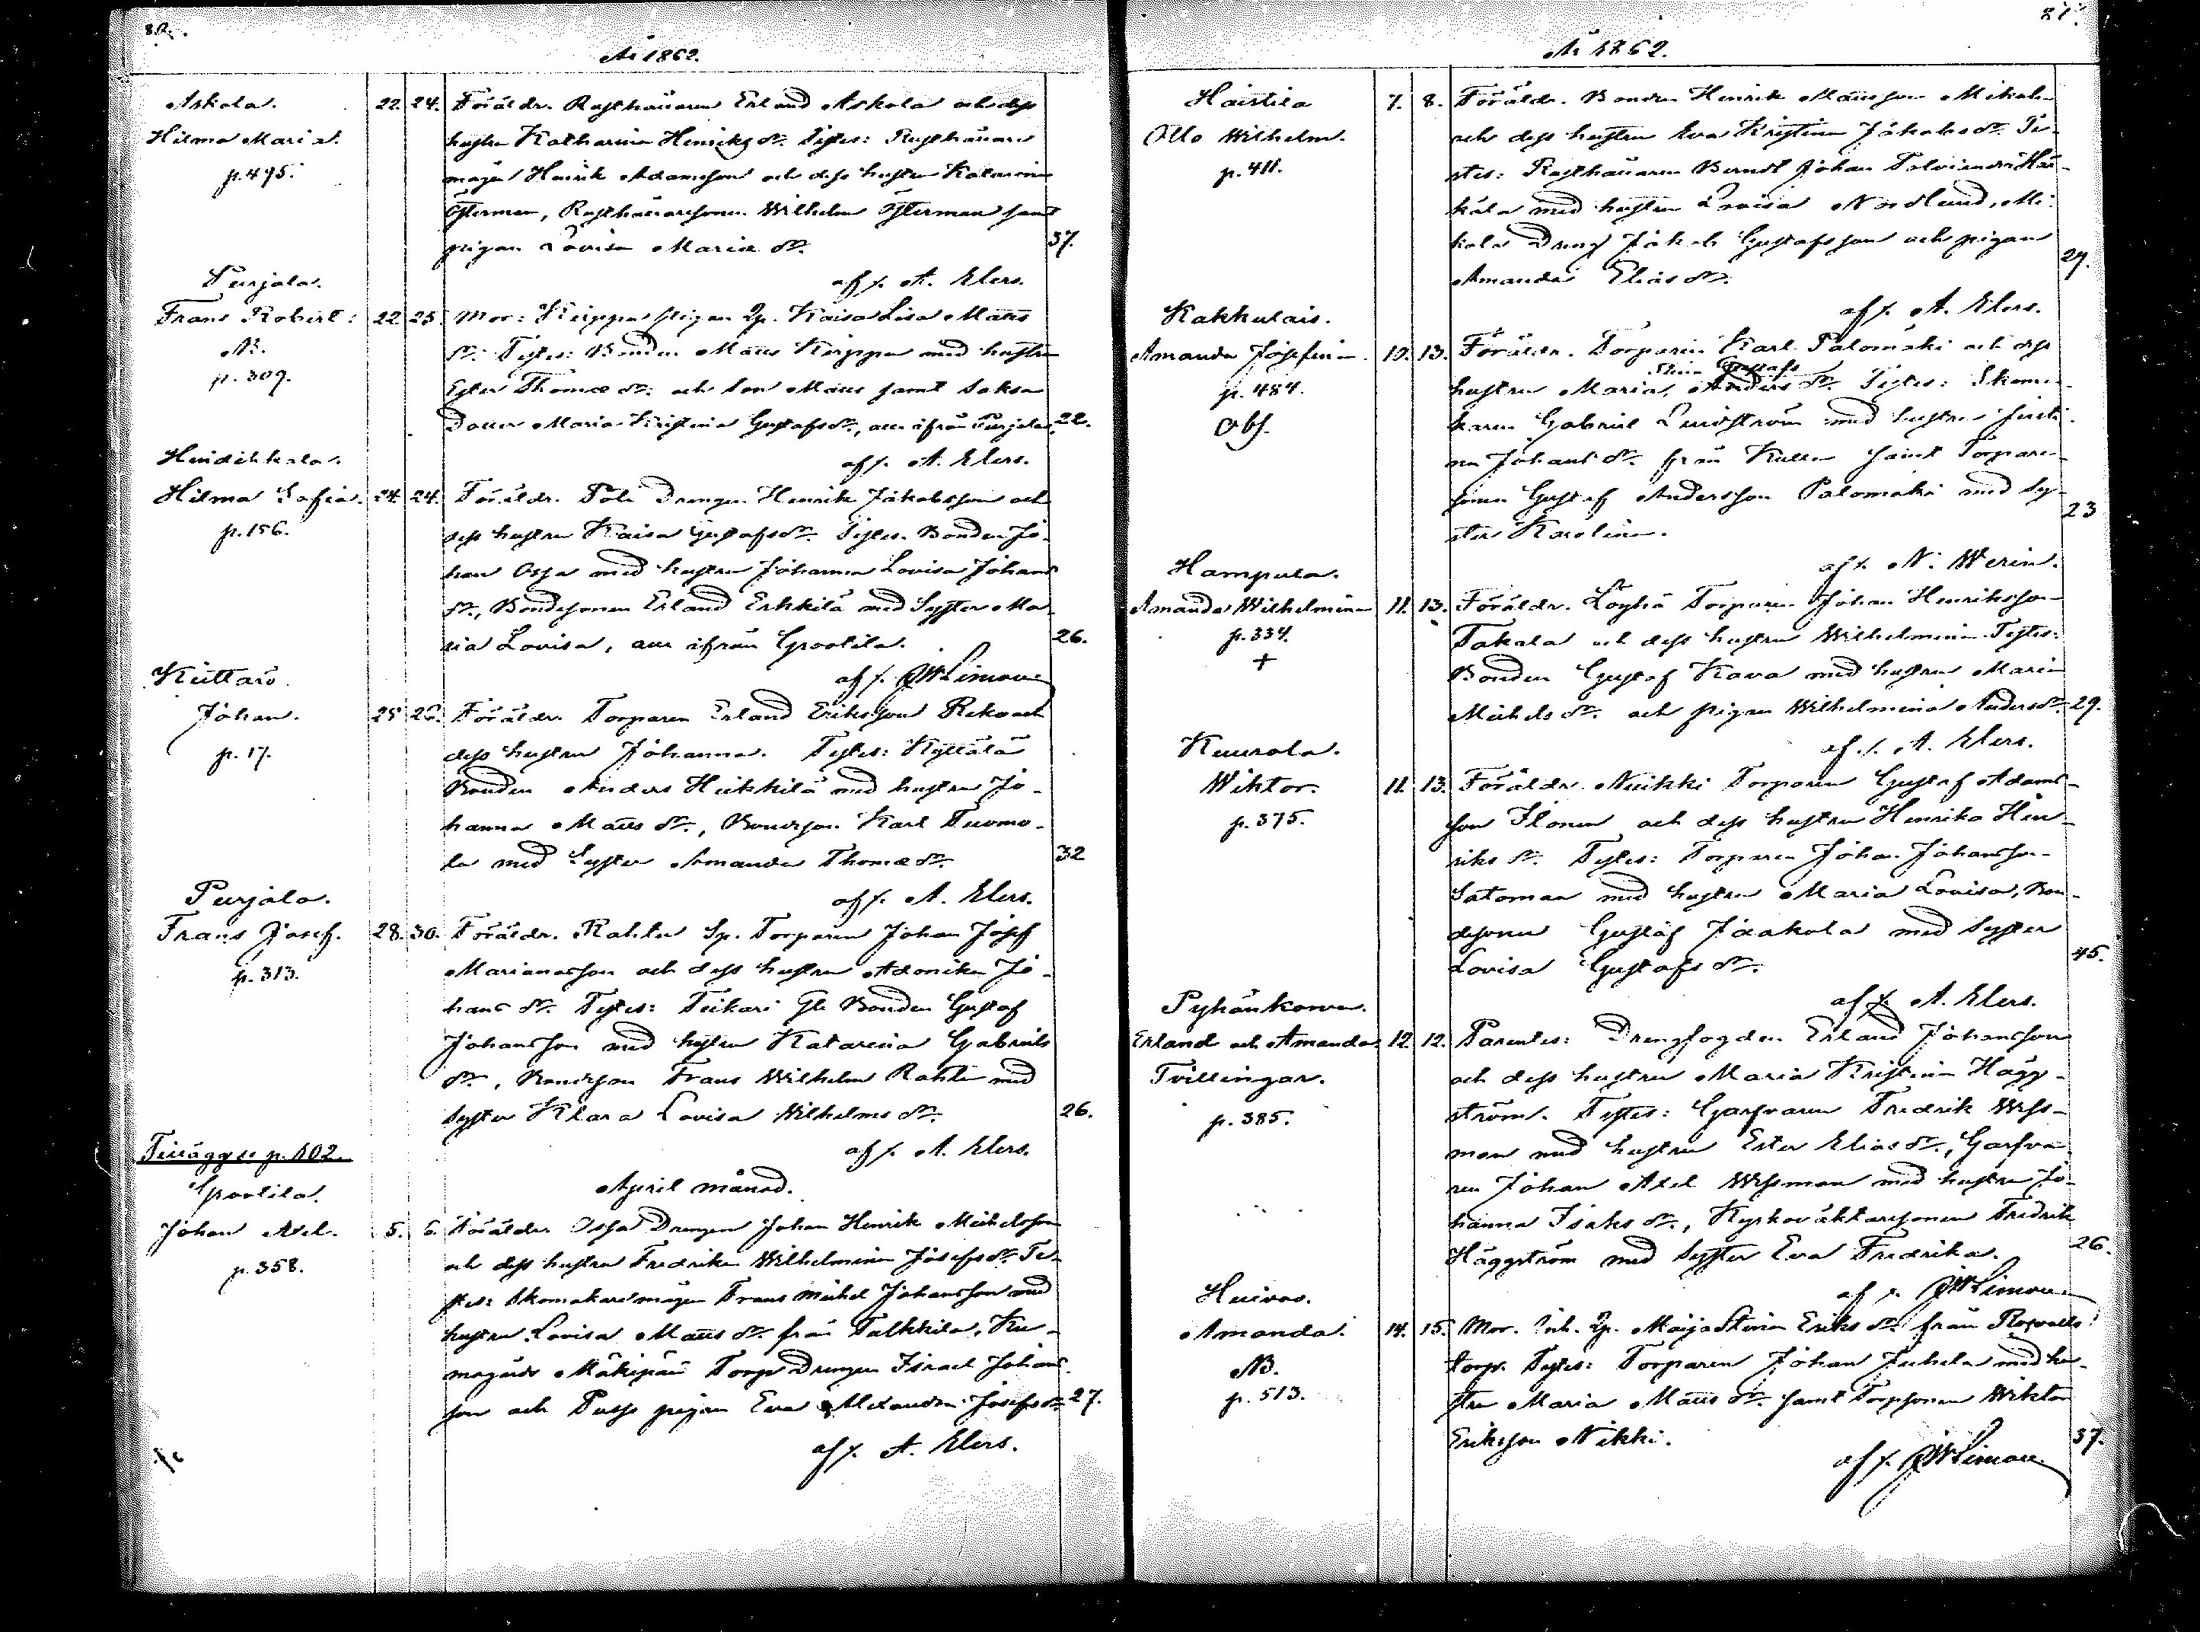 80.
År 1862.
Askola.
Hilma Maria.
p. 495.
22. 24. Föräldr. Rusthållaren Erland Askola och dess
hustru Katharina Henriks dr. Testes: Rusthållare
mågen Henrik Adamsson och dess hustru Katarina
Österman, Rusthållaresonen Wilhelm Österman samt
pigan Lovisa Maria dr. 37.
af s. A. Elers.
Purjala.
Frans Robert.
NB.
p. 309.
22 25 Mor: Kirppu pigan Qp. Kaisa Lisa Matts
dr. Testes: Bonden Matts Kirppu med hustru
Ester Thomæ dr. och Son Matts samt Saksa
Dotter Maria Kristina Gustafsdr., alla ifrån Purjala. 22.
af s. A. Elers.
Huidikkala.
Hilma Sofia.
p. 156.
24. 24. Föräldr. Pola Drengen Henrik Jakobsson och
dess hustru Kaisa Gustafsdr. Testes. Bonden Jo-
han Ossa med hustru Johanna Lovisa Johans
dr., Bondesonen Erland Erkkilä med Syster Ma-
ria Lovisa, alla ifrån Grootila. 26.
af s.
Kuttaro
Johan.
p. 17.
25 26. Föräldr. Torparen Erland Eriksson Reko och
dess hustru Johanna. Testes: Kyttälä
Bonden Anders Heikkilä med hustru Jo-
hanna Matts dr., Bondeson Karl Tuomo-
la med Syster Amanda Thomæ dr. 32
af s. A. Elers.
Purjala.
Frans Josef.
p. 313.
28. 30. Föräldr. Rahka Sp. Torparen Johan Josef
Marianasson och dess hustru Adonika Jo-
hans dr. Testes: Teikari Gle Bonden Gustaf
Johansson med hustru Katarina Gabriels
dr., Bondeson Frans Wilhelm Rahka med
Syster Klara Lovisa Wilhelms dr. 26.
af s. A. Elers.
Tillägg se p. 102.
April månad.
Grootila.
Johan Axel.
p. 358.
5. 6. Föräldr. Ossa Drengen Johan Henrik Michelsson
och dess hustru Fredrika Wilhelmina Josefsdr. Te-
stes: Skomakaremågen Frans Michel Johansson med
hustru Lovisa Matts dr. från Talkkila, Ku-
magårds Mäkipää Torp Drengen Israel Johans-
son och Pusss pigan Eva Alexandra Josefsdr. 27.
af s. A. Elers.
81.
År 1862.
Haistila
Otto Wilhelm.
p. 411.
7. 8. Föräldr. Bonden Henrik Mattsson Mikola
och dess hustru Eva Kristina Jakobsdr. Te-
stes: Rusthållaren Berndt Johan
med hustru Lovisa Nordlund, Mi-
kola Dreng Jakob Gustafsson och pigan
Amanda Elias dr. 29.
af s. A. Elers.
Kakkulais.
Amanda Josefina.
p. 484.
Obs.
10. 13. Föräldr. Torparen Karl Palomäki och dess
Stina Gustafs
hustru Maria, Anders dr. Testes: Skoma-
karen Gabriel Lindström med hustru Justi-
na Johans dr. från Kulla samt Torpare-
sonen Gustaf Andersson Palomäki med Sy-
ster Karolina. 23
af s. N. Werin.
Hampula.
Amanda Wilhelmina
p. 334.
+
11. 13. Föräldr. Löyhä Torparen Johan Henriksson
Takala och dess hustru Wilhelmina. Testes:
Bonden Gustaf Kava med hustru Maria
Michels dr. och pigan Wilhelmina Andersdr. 29.
af s. A. Elers.
Kuurola.
Wiktor.
p. 375.
11. 13. Föräldr. Nuikki Torparen Gustaf Adams-
son Ilonen och dess hustru Henrika Hen-
riks dr. Testes: Torparen Johan Johansson
Satoman med hustru Maria Lovisa, Bon-
desonen Gustaf Jaakola med Syster
Lovisa Gustafs dr. 45.
af s. A. Elers.
Pyhänkorva.
Erland och Amanda
Tvillingar.
p. 385.
12. 12. Parentes: Drengfogden Erland Johansson
och dess hustru Maria Kristina Hägg-
ström. Testes: Garfvaren Fredrik Wess-
man med hustru Ester Elias dr., Garfva-
ren Johan Axel Wessman med hustru Jo-
hanna Isaks dr., Kyrkovaktaresonen Fredrik
Häggström med Syster Eva Fredrika. 26.
af s.
Huivas.
Amanda.
NB.
p. 513.
14. 15. Mor. Inh. Qp. Maja Stina Eriks dr. från Rosvalls
torp. Testes: Torparen Johan Juhela med hu-
stru Maria Matts dr. samt Torpsonen Wiktor
Eriksson Nikki. 37.
af s.